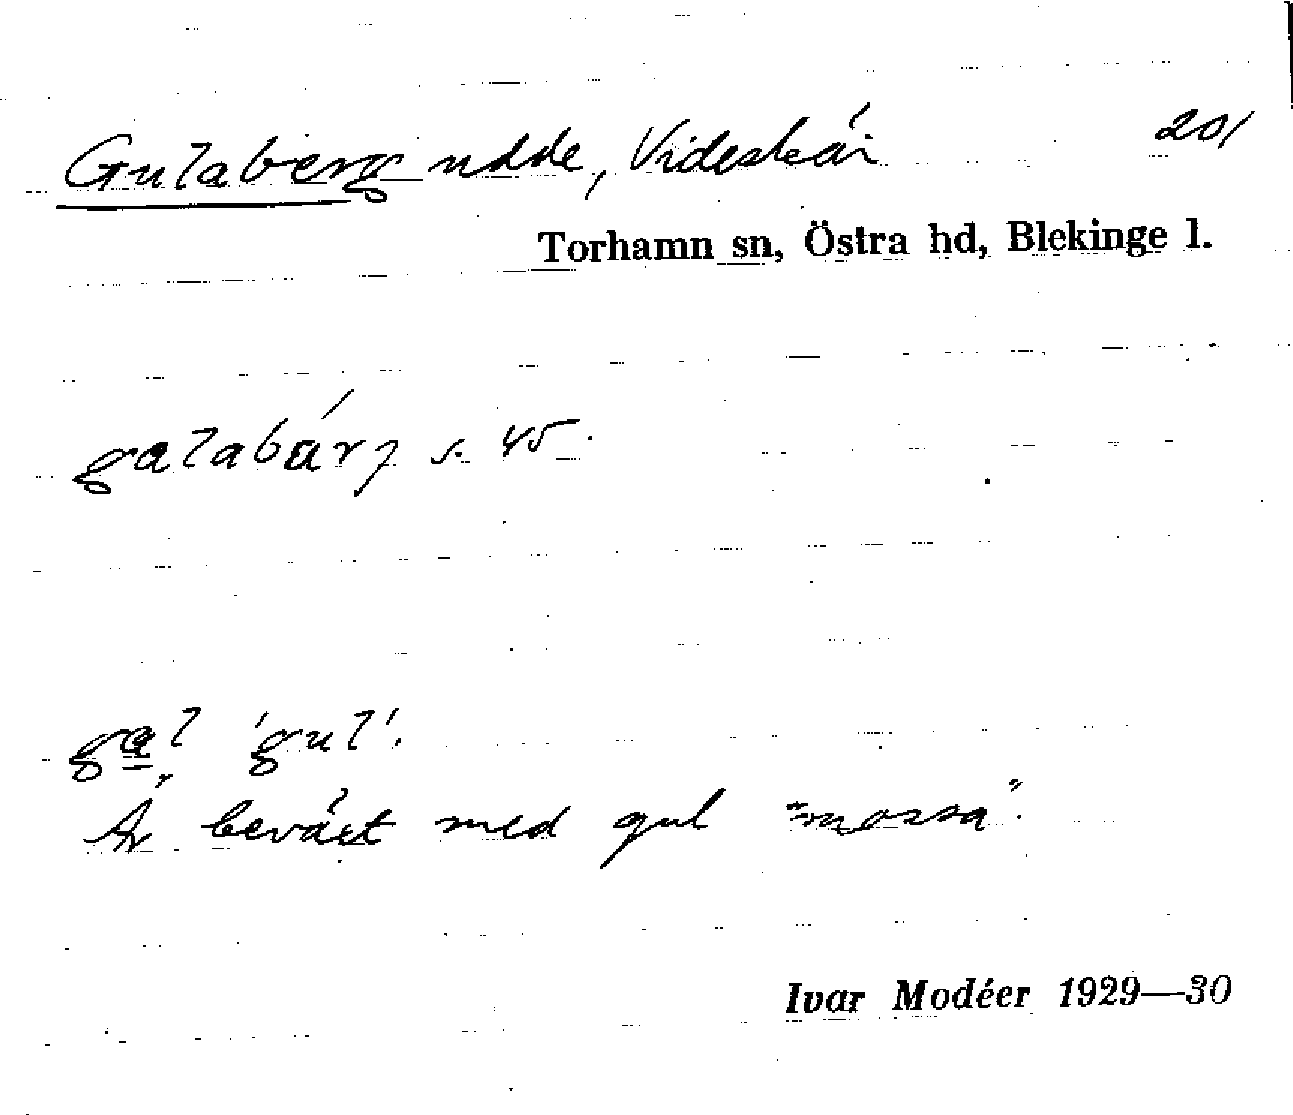 Gulaberg udde, Videskär 201
Torhamn sn, Östra hd, Blekinge l.
galabärj s. 45.
gal 'gul'.
Är beväxt med gul "mossa".
Ivar Modéer 1929—30